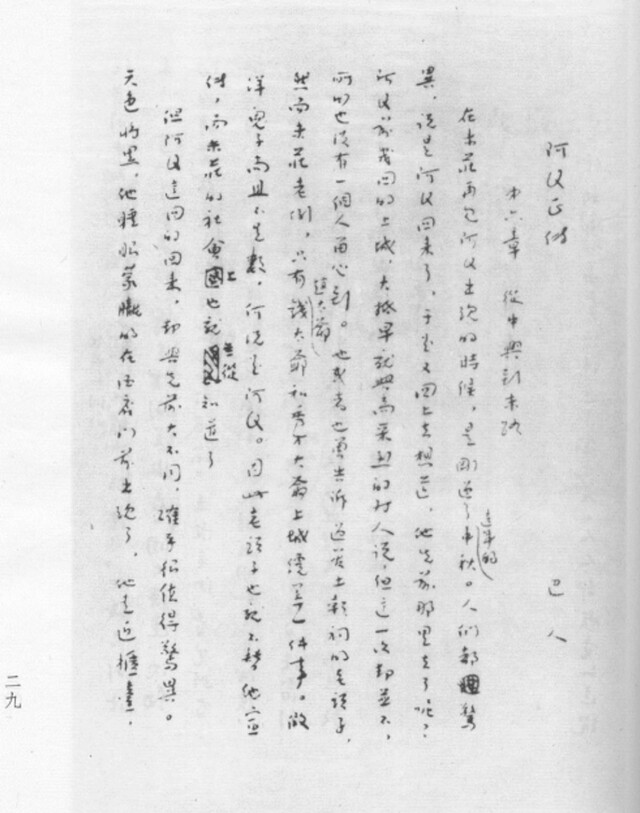 阿Q正傳
第六章　從中興到末路　巴人
在未莊再見阿Q出現的時候，是剛過了這年的中秋。人們都驚
異，說是阿Q回來了，于是又回上去想道，他先前那里去了呢？
阿Q前幾回的上城，大抵早就興高采烈的對人說，但這一次却並不，
所以也沒有一個人留心到。他或者也曾告訴過管土穀祠的老頭子，
然而未莊老例，只有趙太爺錢太爺和秀才大爺上城纔算一件事。假
洋鬼子尚且不足數，何況是阿Q。因此老頭子也就不替他宣
傳，而未莊的社會上也就無從知道了
但阿Q這回的回來，却與先前大不同，確乎很值得驚異。
天色將黑，他睡眼蒙朧的在酒店門前出現了，他走近櫃臺，
二九